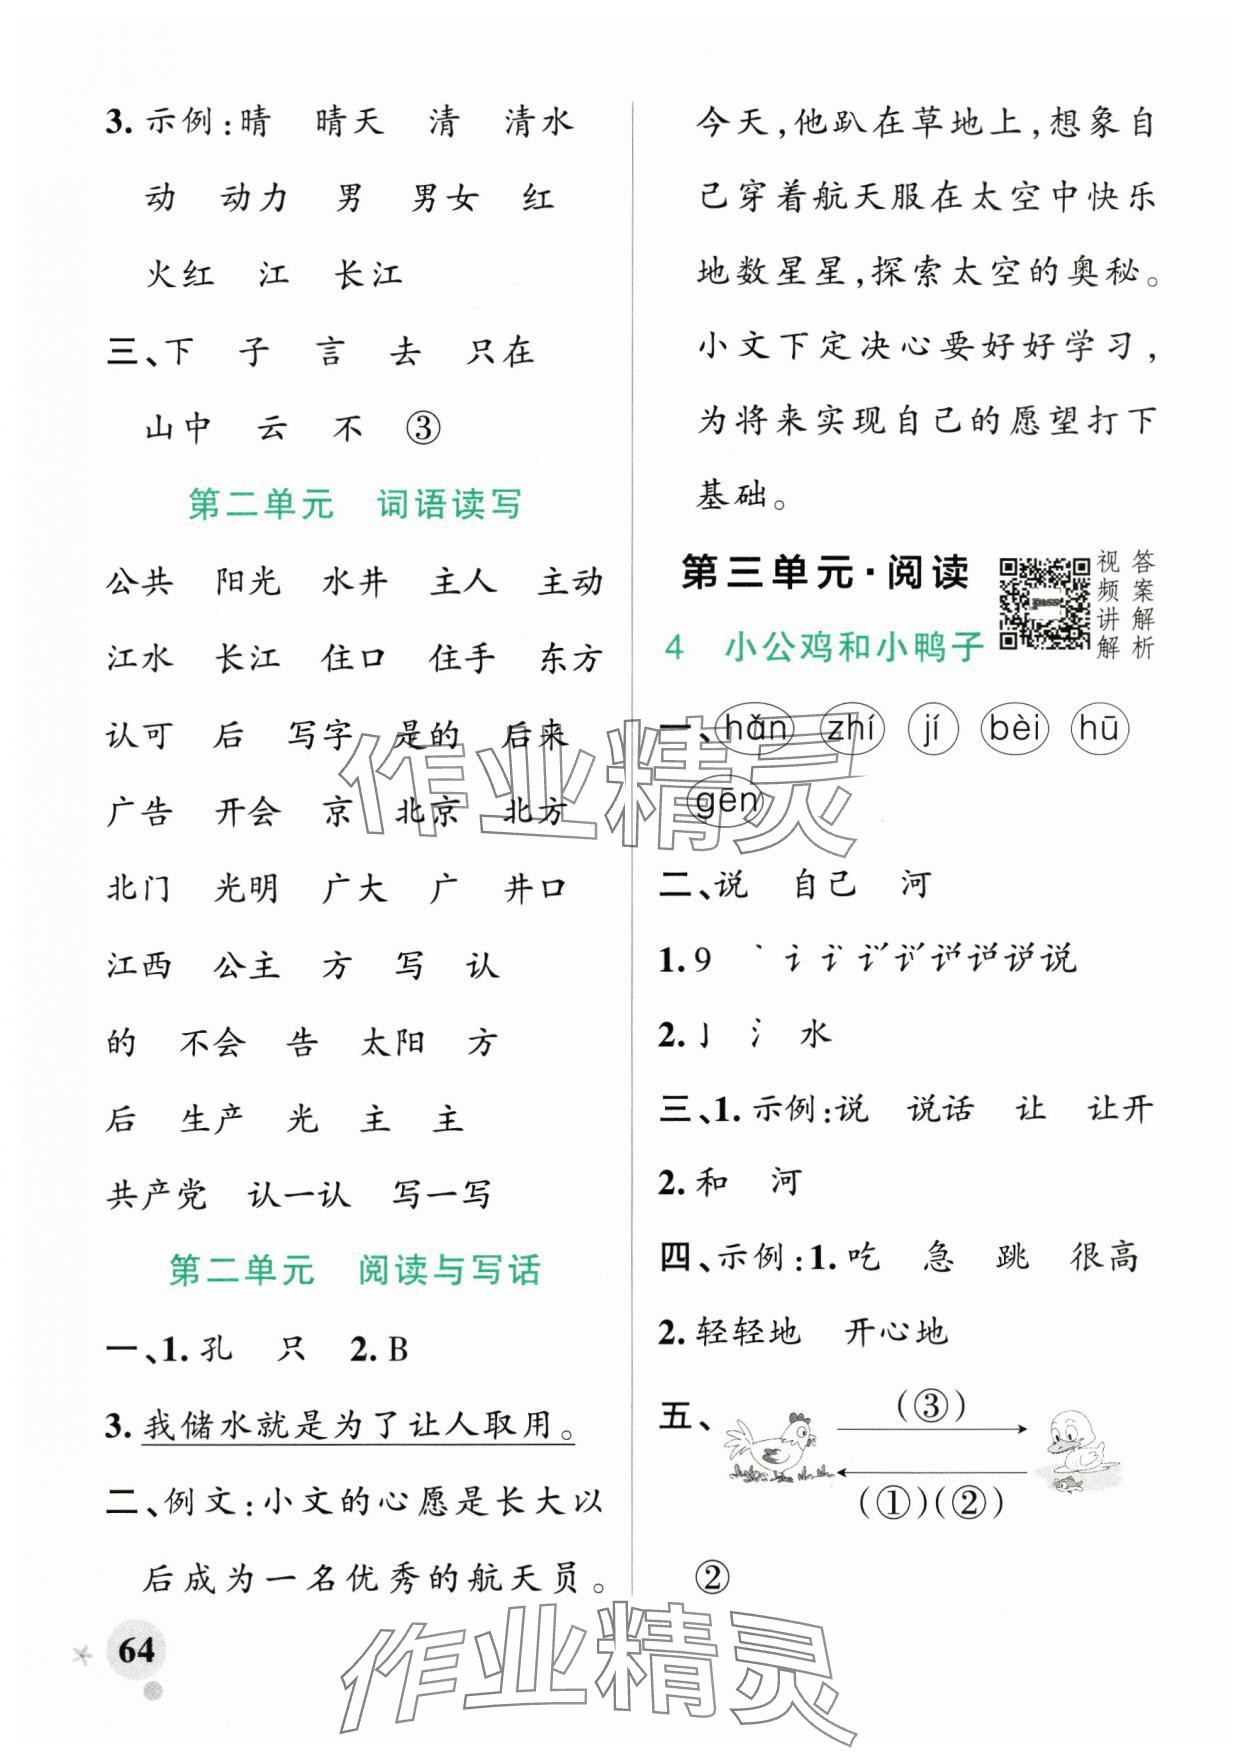 3. 示例:晴 晴天 清 清水
动 动力 男 男女 红
火红 江 长江
三、下 子 言 去 只在
山中 云 不 ③
第二单元 词语读写
公共 阳光 水井 主人 主动
江水 长江 住口 住手 东方
认可 后 写字 是的 后来
广告 开会 京 北京 北方
北门 光明 广大 广 井口
江西 公主 方 写 认
的 不会 告 太阳 方
后 生产 光 主 主
共产党 认一认 写一写
第二单元 阅读与写话
一、1. 孔 只 2. B
3. 我储水就是为了让人取用。
二、例文:小文的心愿是长大以
后成为一名优秀的航天员。
64
今天,他趴在草地上,想象自
己穿着航天服在太空中快乐
地数星星,探索太空的奥秘。
小文下定决心要好好学习,
为将来实现自己的愿望打下
基础。
第三单元·阅读
视频讲解
答案解析
pass
4 小公鸡和小鸭子
一、hǎn zhí jí bèi hū
gēn
二、说 自己 河
1. 9 丶 讠 说
2. 亅 氵 水
三、1. 示例:说 说话 让 让开
2. 和 河
四、示例:1. 吃 急 跳 很高
2. 轻轻地 开心地
五、(③)
(①)(②)
②
作业精灵
作业精灵